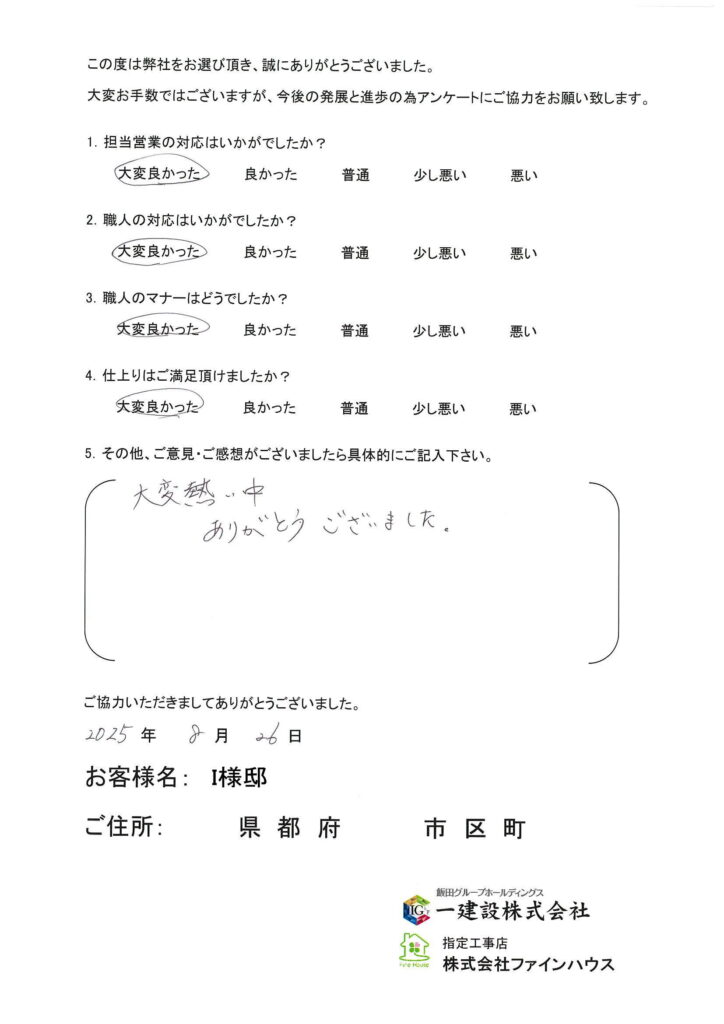 この度は弊社をお選び頂き、誠にありがとうございました。
大変お手数ではございますが、今後の発展と進歩の為アンケートにご協力をお願い致します。
1. 担当営業の対応はいかがでしたか？
大変良かった 良かった 普通 少し悪い 悪い
2. 職人の対応はいかがでしたか？
大変良かった 良かった 普通 少し悪い 悪い
3. 職人のマナーはどうでしたか？
大変良かった 良かった 普通 少し悪い 悪い
4. 仕上りはご満足頂けましたか？
大変良かった 良かった 普通 少し悪い 悪い
5. その他、ご意見・ご感想がございましたら具体的にご記入下さい。
大変熱い中
ありがとうございました。
ご協力いただきましてありがとうございました。
2025 年 8 月 26 日
お客様名： I様邸
ご住所： 県 都 府 市 区 町
飯田グループホールディングス
IG
一建設株式会社
指定工事店
Fine House
株式会社ファインハウス